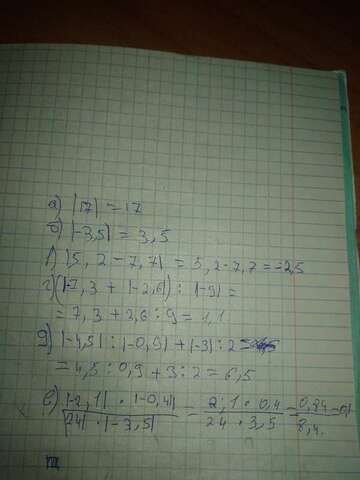 а) |17| = 17
б) |-3,5| = 3,5
в) |5,2-7,7| = 5,2-7,7 = -2,5
г) (|-7,3 + |-2,6|) : |-9| =
= 7,3 + 2,6 : 9 = 1,1
д) |-4,5| : |-0,9| + |-3| : 2 =
= 4,5 : 0,9 + 3 : 2 = 6,5
е) |-2,1| · |-0,4| / |24| · |-3,5| = 2,1 · 0,4 / 24 · 3,5 = 0,84 / 8,4